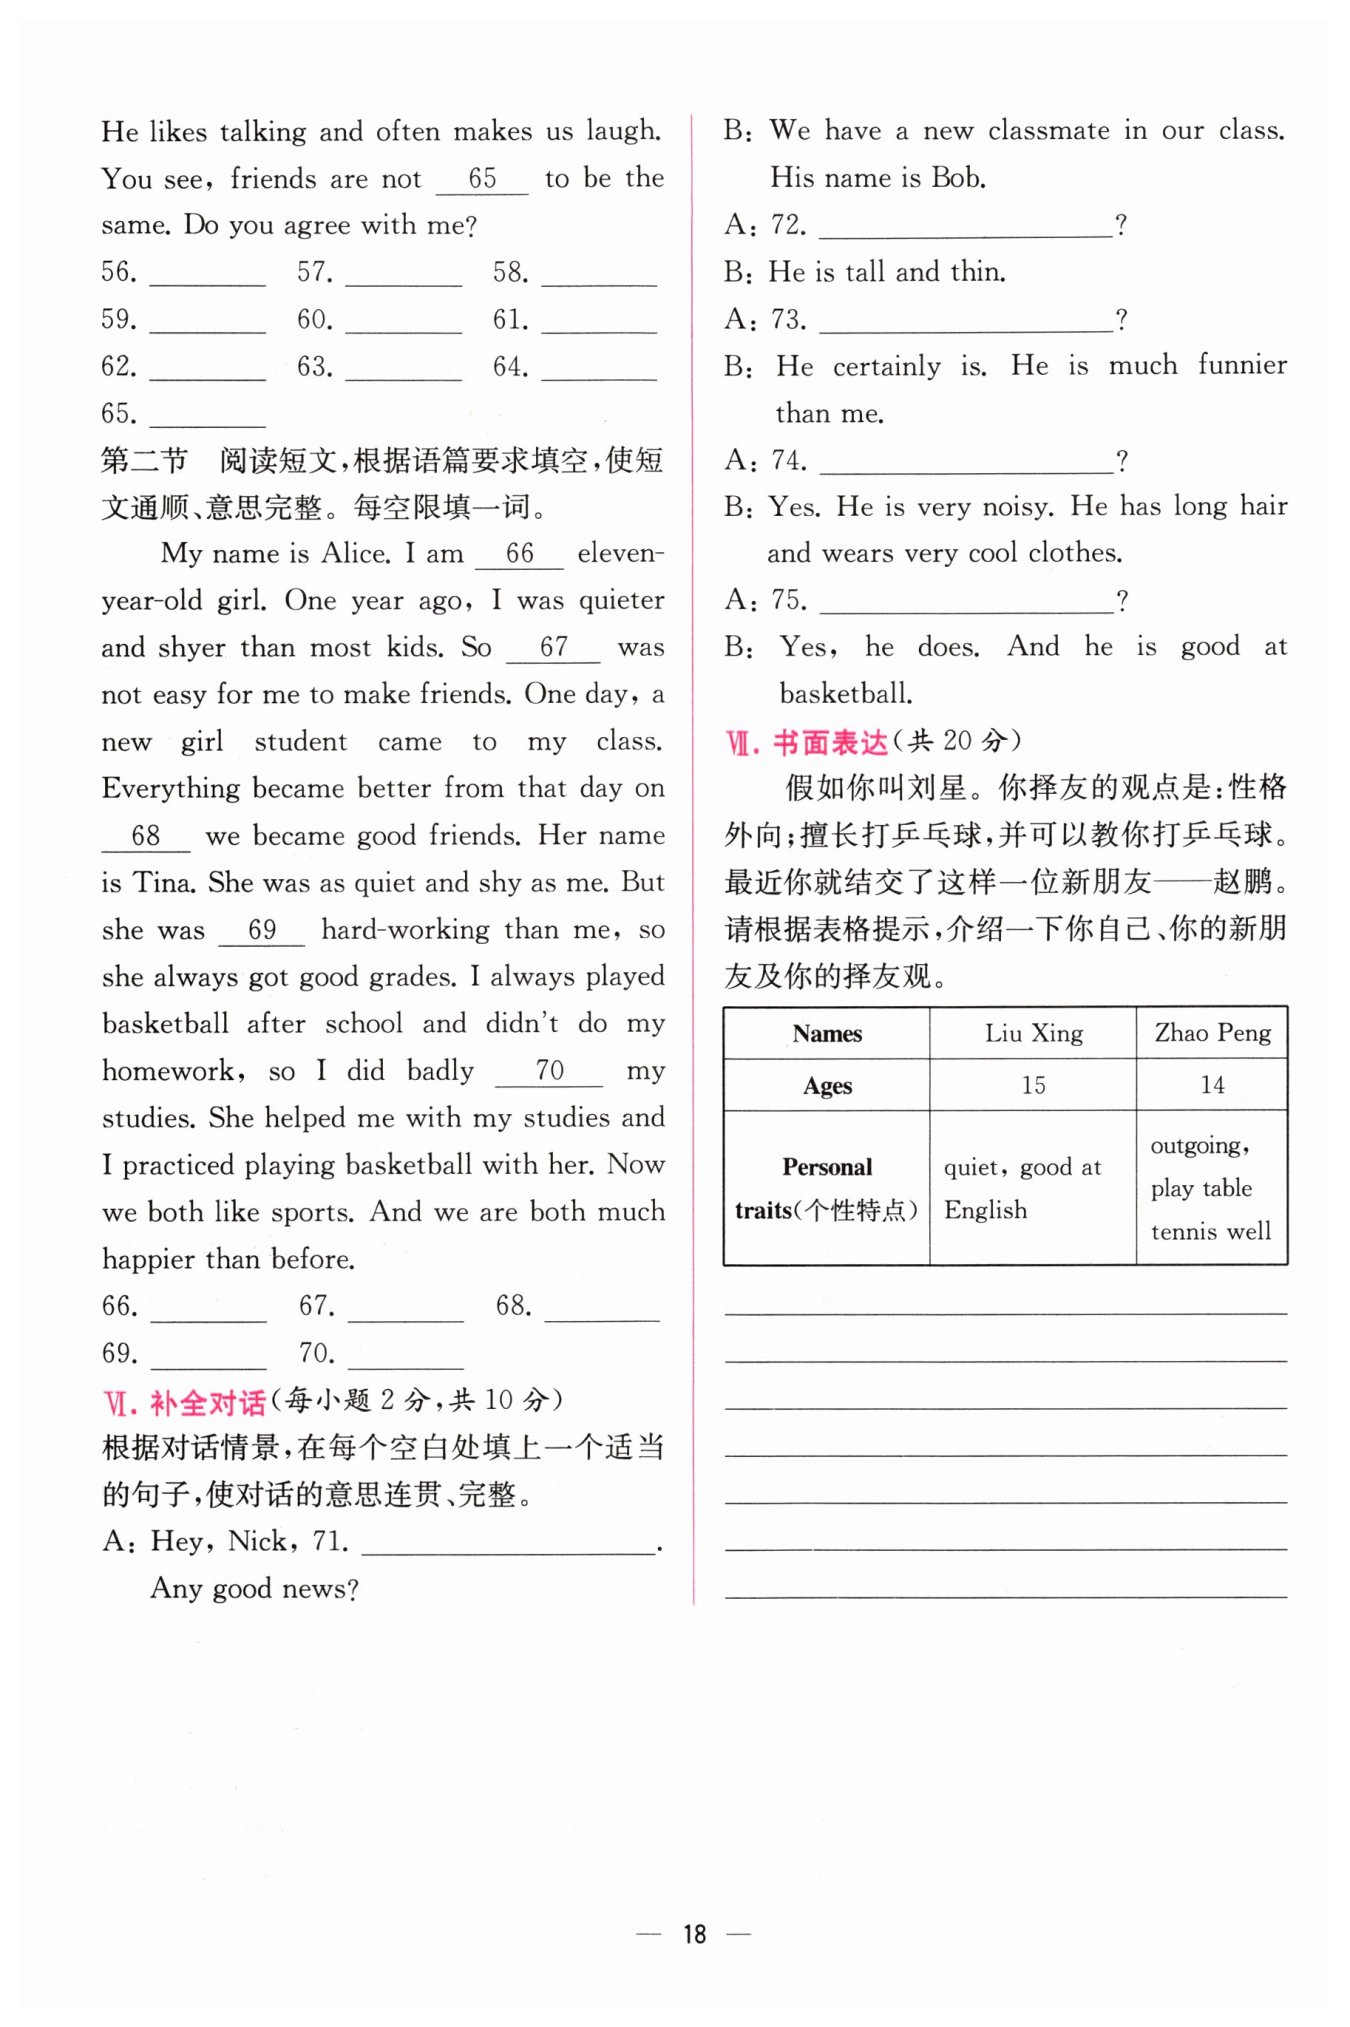 He likes talking and often makes us laugh.
You see, friends are not 65 to be the
same. Do you agree with me?
56. ________ 57. ________ 58. ________
59. ________ 60. ________ 61. ________
62. ________ 63. ________ 64. ________
65. ________
第二节 阅读短文,根据语篇要求填空,使短
文通顺、意思完整。每空限填一词。
My name is Alice. I am 66 eleven-
year-old girl. One year ago, I was quieter
and shyer than most kids. So 67 was
not easy for me to make friends. One day, a
new girl student came to my class.
Everything became better from that day on
68 we became good friends. Her name
is Tina. She was as quiet and shy as me. But
she was 69 hard-working than me, so
she always got good grades. I always played
basketball after school and didn't do my
homework, so I did badly 70 my
studies. She helped me with my studies and
I practiced playing basketball with her. Now
we both like sports. And we are both much
happier than before.
66. ________ 67. ________ 68. ________
69. ________ 70. ________
Ⅵ. 补全对话(每小题 2 分,共 10 分)
根据对话情景,在每个空白处填上一个适当
的句子,使对话的意思连贯、完整。
A: Hey, Nick, 71. ____________________.
Any good news?
B: We have a new classmate in our class.
His name is Bob.
A: 72. ____________________?
B: He is tall and thin.
A: 73. ____________________?
B: He certainly is. He is much funnier
than me.
A: 74. ____________________?
B: Yes. He is very noisy. He has long hair
and wears very cool clothes.
A: 75. ____________________?
B: Yes, he does. And he is good at
basketball.
Ⅶ. 书面表达(共 20 分)
假如你叫刘星。你择友的观点是:性格
外向;擅长打乒乓球,并可以教你打乒乓球。
最近你就结交了这样一位新朋友——赵鹏。
请根据表格提示,介绍一下你自己、你的新朋
友及你的择友观。
Names Liu Xing Zhao Peng
Ages 15 14
Personal traits(个性特点) quiet, good at English outgoing, play table tennis well
— 18 —